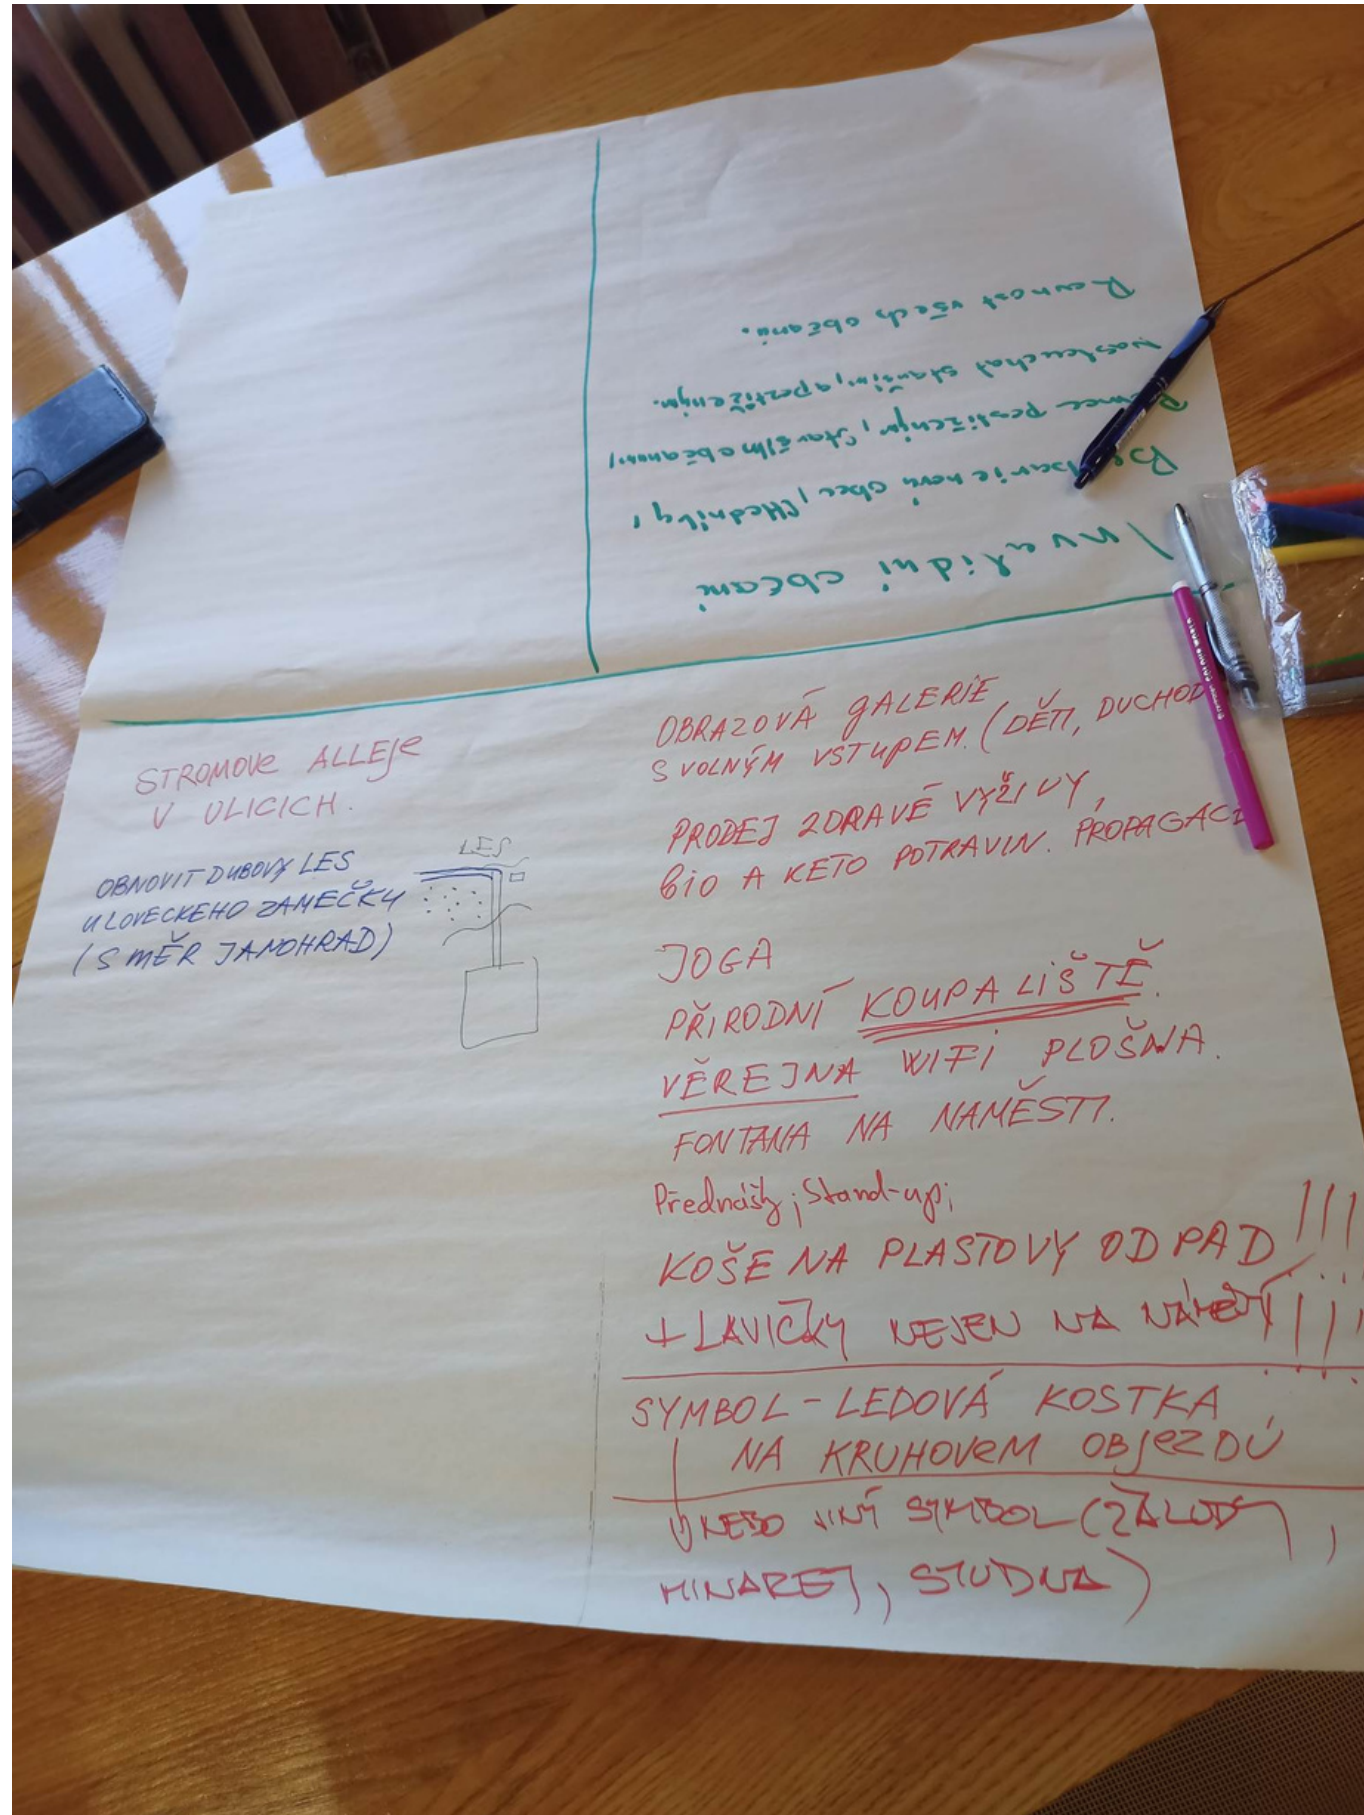 Invalidní občané
obec, Chodníky!
postiženým, starším občanům!
naslouchat starším, a postiženým.
Rovnost všech občanů.
STROMOVE ALLEJe
V ULICICH.
OBNOVIT DUBOVY LES
U LOVECKEHO ZAMEČKU
(SMĚR JANOHRAD)
LES
OBRAZOVÁ gALERIE
S VOLNÝM VSTUPEM. (DĚTI, DUCHOD
PRODEJ ZDRAVÉ VÝŽIVY,
BiO A KETO POTRAVIN. PROPAGACE
JOGA
PŘIRODNÍ KOUPALIŠTĚ.
VĚREJNA WIFI PLOŠNA.
FONTANA NA NAMĚSTI.
Přednášky; Stand-up;
KOŠE NA PLASTOVÝ ODPAD !!!
+ LAVIČKY NEJEN NA NÁMĚSTÍ !!!
SYMBOL - LEDOVÁ KOSTKA
NA KRUHOVeM OBJeZDŮ
NEBO JINÝ SYMBOL (ŽALUDY,
MINARET, STUDNA)